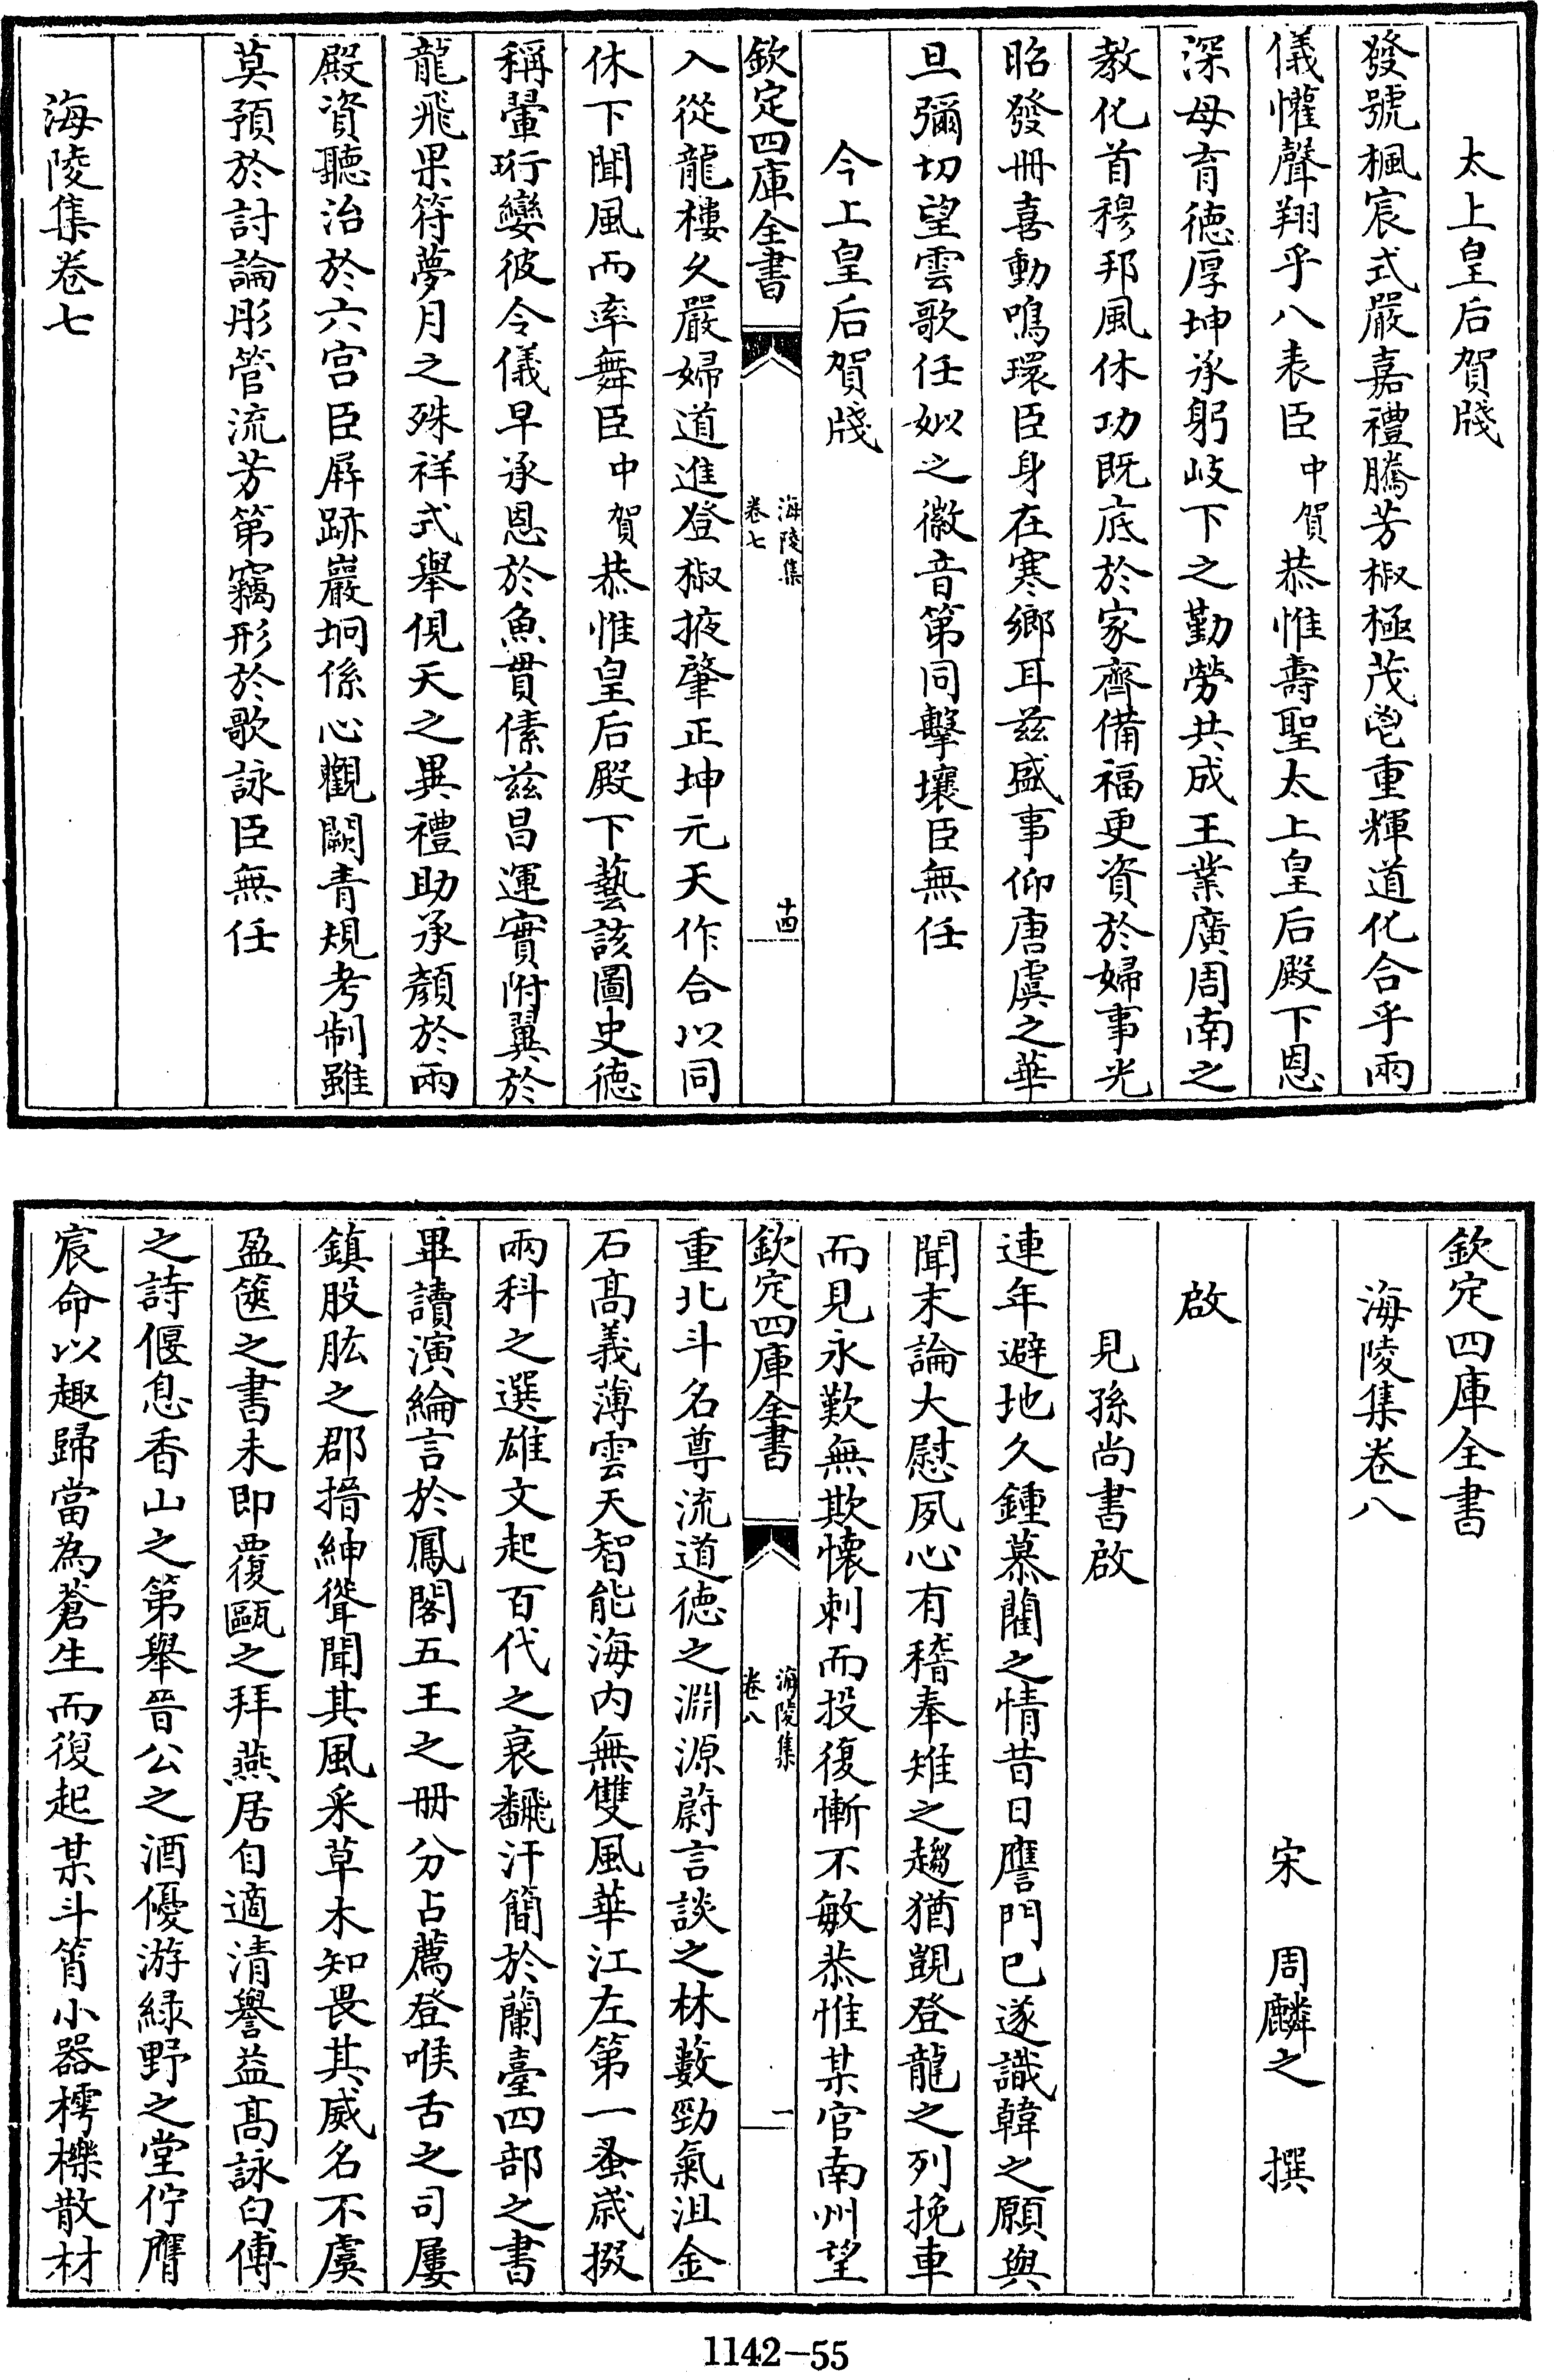 太上皇后賀牋
發號楓宸式嚴嘉禮騰芳椒極茂鬯重輝道化合乎兩
儀懽聲翔乎八表臣中賀恭惟壽聖太上皇后殿下恩
深母育德厚坤承躬岐下之勤勞共成王業廣周南之
教化首穆邦風休功既底於家齊備福更資於婦事光
昭發冊喜動鳴環臣身在寒鄉耳兹盛事仰唐虞之華
旦彌切望雲歌任姒之徽音第同擊壤臣無任
今上皇后賀牋
欽定四庫全書
海陵集
卷七
十四
入從龍樓久嚴婦道進登椒掖肇正坤元天作合以同
休下聞風而率舞臣中賀恭惟皇后殿下藝該圖史德
稱翬珩孌彼令儀早承恩於魚貫傃兹昌運實附翼於
龍飛果符夢月之殊祥式舉俔天之異禮助承顏於兩
殿資聽治於六宫臣屏跡巖坰係心觀闕青規考制雖
莫預於討論彤管流芳第竊形於歌詠臣無任
海陵集卷七
欽定四庫全書
海陵集卷八
宋 周麟之 撰
啟
見孫尚書啟
連年避地久鍾慕藺之情昔日膺門已遂識韓之願與
聞末論大慰夙心有稽奉雉之趨猶覬登龍之列挽車
而見永歎無欺懷刺而投復慚不敏恭惟某官南州望
欽定四庫全書
海陵集
卷八
一
重北斗名尊流道德之淵源蔚言談之林藪勁氣沮金
石高義薄雲天智能海内無雙風華江左第一蚤歲掇
兩科之選雄文起百代之衰飜汗簡於蘭臺四部之書
畢讀演綸言於鳳閣五王之冊分占薦登喉舌之司屢
鎮股肱之郡搢紳聳聞其風采草木知畏其威名不虞
盈篋之書未即覆甌之拜燕居自適清譽益高詠白傅
之詩偃息香山之第舉晉公之酒優游緑野之堂佇膺
宸命以趣歸當為蒼生而復起某斗筲小器樗櫟散材
1142-55